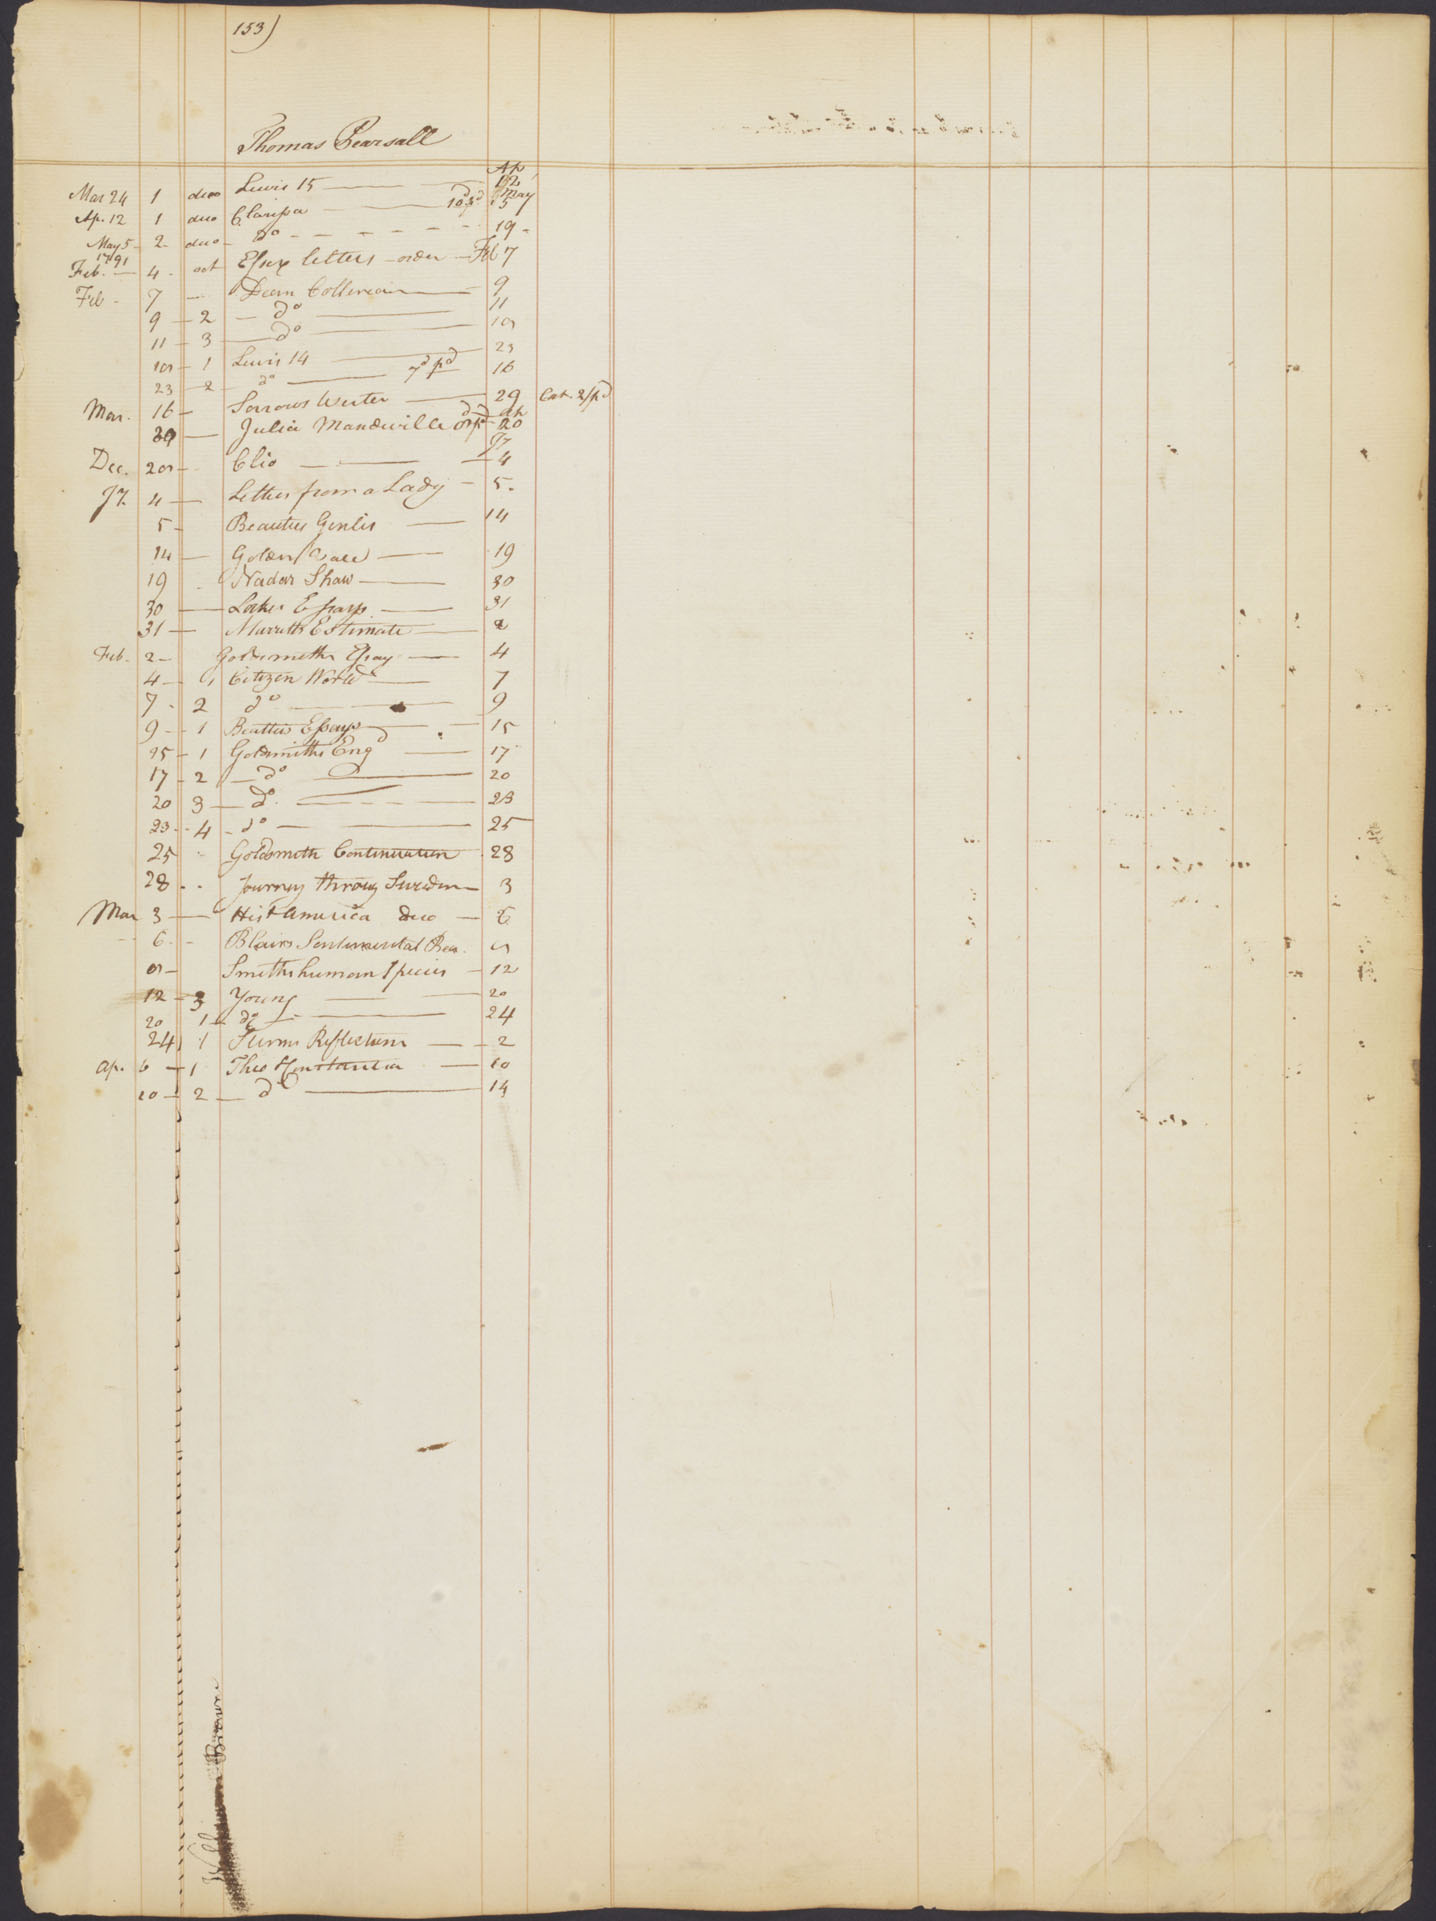 153)
Thomas Pearsall
Ap
Mar 24 1 duo Lewis 15 12
May
Ap. 12 1 duo Clarissa 5
May 5 - 2 - duo - do - - - - - - 19 -
1791
Feb. - 4 - oct Essex letters - order - Feb 7
Feb - 7 - Dean Collerain - 9
9 - 2 - do 11
11 - 3 - do
1 Lewis 14 23
23 - 2 - do 7d pd 16
Mar. 16 - Sorrows Werter 29 Cat. 2/ pd
Ap
Julia Mandeville 20
Jy
Dec. Clio - 4
Jy. 4 - Letters from a Lady - 5.
5 - Beauties Genlis 14
14 - Golden 19
19 Nadar Shaw 30
30 Lockes Essays 31
31 - Estimate 2
Feb. 2 - Goldsmiths Essay 4
4 - 1 Citizen World 7
7 - 2 do 9
9 - 1 Beatties Essays - 15
15 - 1 Goldsmiths Engd 17
17 - 2 - do 20
20 3 - do. 23
23 - 4 - do 25
25 Goldsmith Continuation 28
28 - - Journey throug Sweden 3
Mar 3 - Hist America duo - 6
6 - Blairs Sentimental Bea.
Smiths human Species - 12
12 - 3 Young 20
20 1 - do 24
24 1 Sturms Reflections - 2
Ap. 6 - 1 Theo Constantia 10
10 - 2 - do 14
William Browne